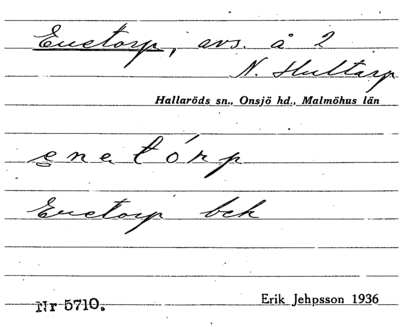 Enetorp, avs. å 2
N. Hultarp
Hallaröds sn., Onsjö hd., Malmöhus län
enetórp
Enetorp bck
Nr 5710.
Erik Jehpsson 1936